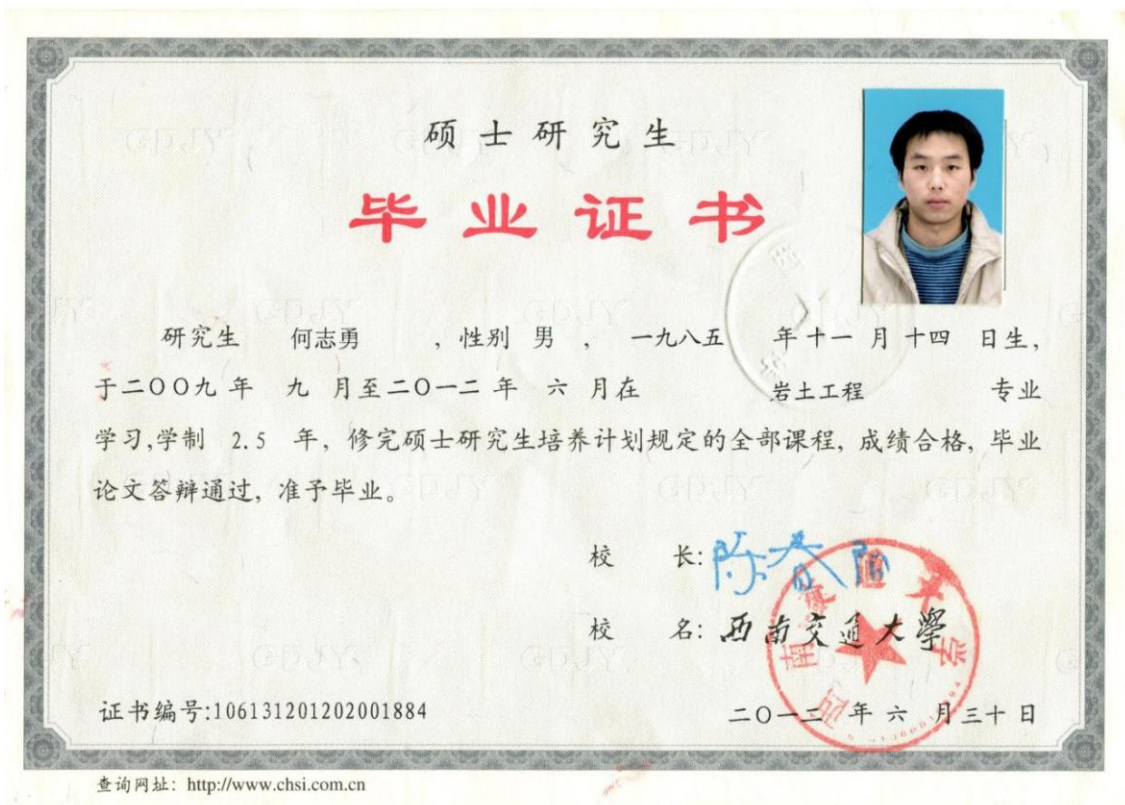 硕士研究生
毕业证书
研究生 何志勇 ，性别 男 ， 一九八五 年十一 月 十四 日生，
于二〇〇九 年 九 月至二〇一二 年 六 月在 岩土工程 专业
学习,学制 2.5 年，修完硕士研究生培养计划规定的全部课程，成绩合格，毕业
论文答辩通过，准予毕业。
校 长: 陈春阳
校 名: 西南交通大學
西南交通大学
证书编号:106131201202001884
二〇一二 年 六 月三十 日
查询网址：http://www.chsi.com.cn
GDJY